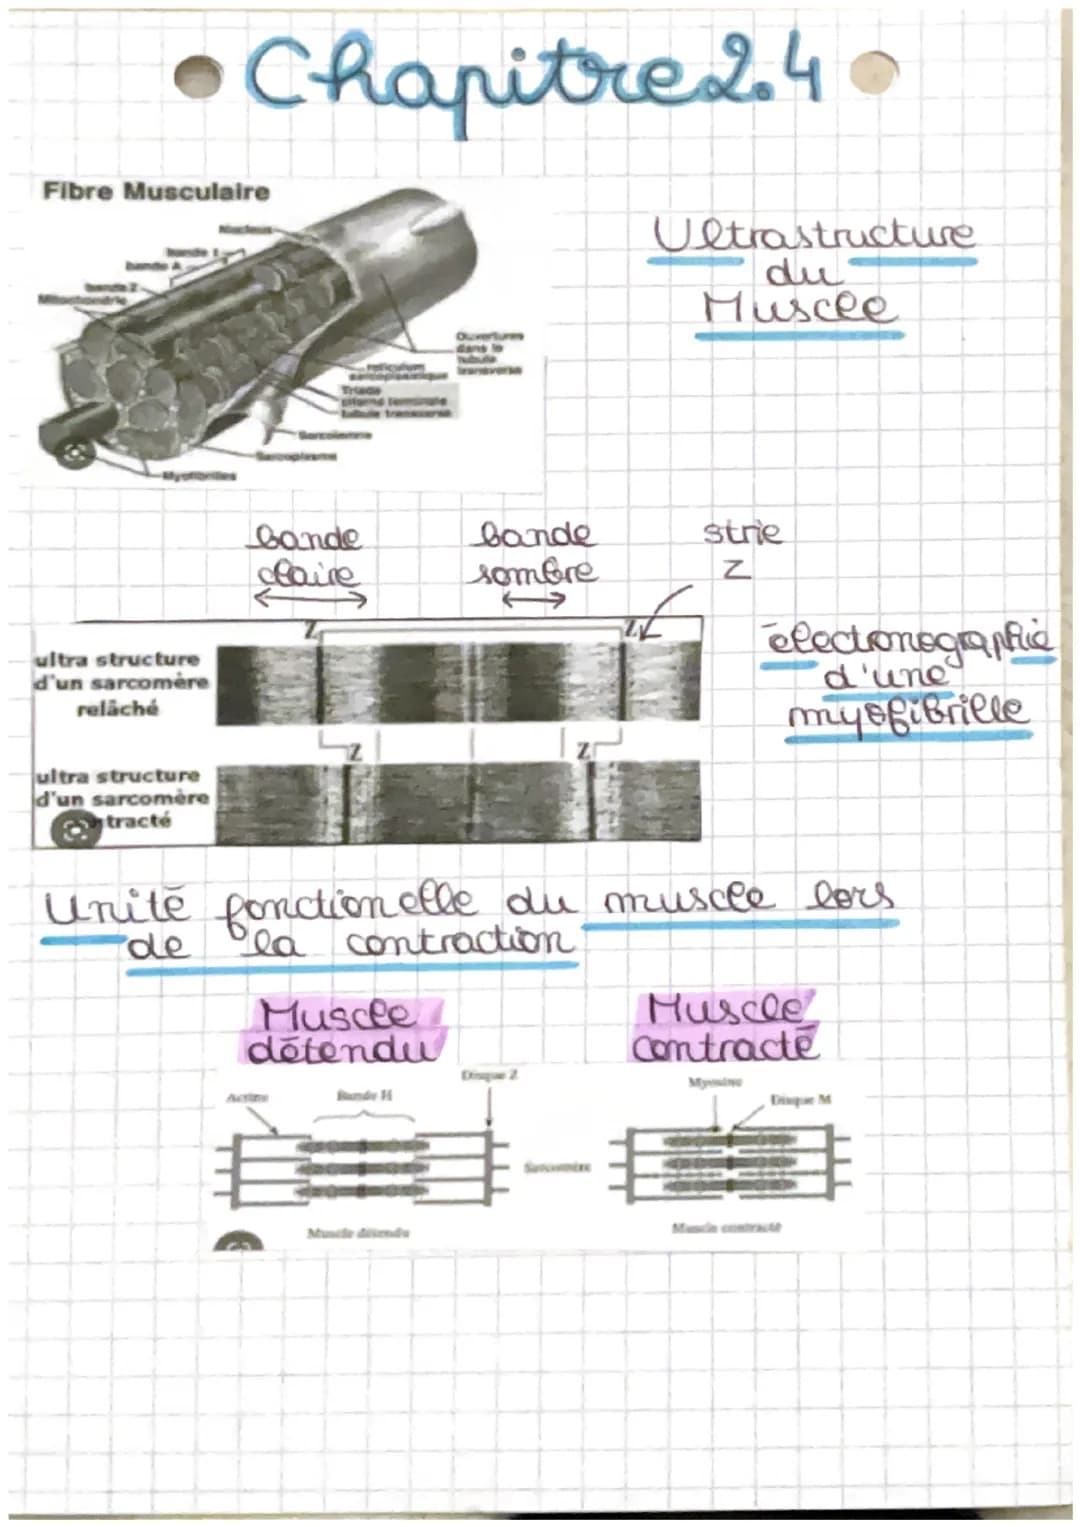 Chapitre 2.4
Fibre Musculaire
Nucleus
bande I
bande A
bande Z
Mitochondrie
Ultrastructure
du
Muscle
Ouvertures
dans le
tubule
transverse
reticulum
sarcoplasmique
Triade
citerne terminale
tubule transverse
Sarcolemme
Sarcoplasme
Myofibrilles
bande
claire
bande
sombre
strie
Z
Z
Z
ultra structure
d'un sarcomère
relâché
électronographie
d'une
myofibrille
Z
Z
ultra structure
d'un sarcomère
tracté
Unité fonctionelle du muscle lors
de la contraction
Muscle
détendu
Muscle
contracté
Actine
Bande H
Disque Z
Myosine
Disque M
Sarcomère
Muscle détendu
Muscle contracté